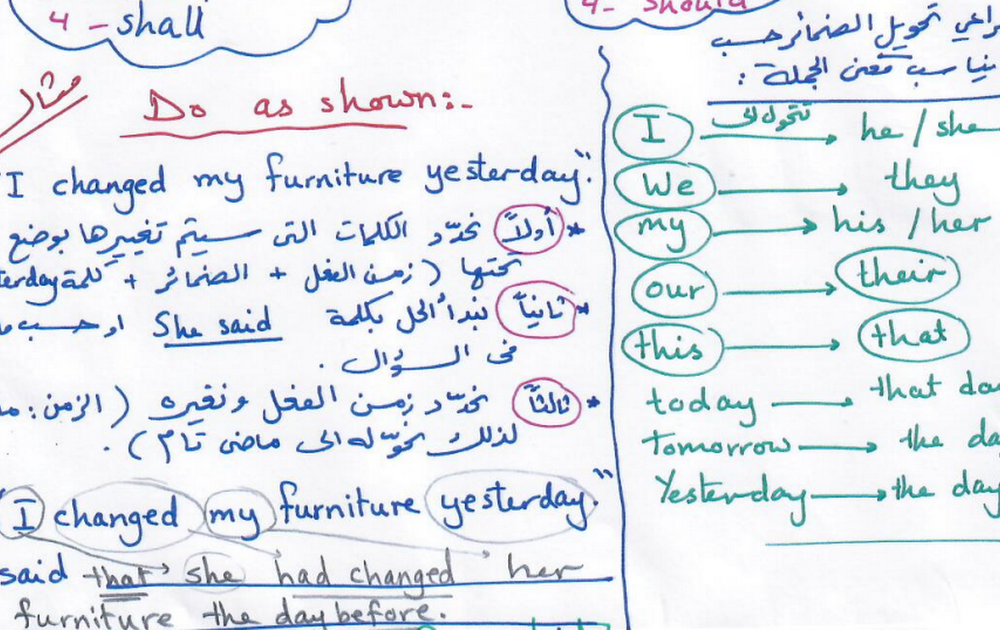 4 - shall
4- should
مثال
Do as shown:-
"I changed my furniture yesterday."
* أولاً نحدّد الكلمات التى سيتم تغييرها بوضع
تحتها (زمن الفعل + الضمائر + كلمة yesterday
* ثانياً نبدأ الحل بكلمة She said او حسب
فى السؤال .
* ثالثاً نحدّد زمن الفعل ونغيره (الزمن :
لذلك نحوّله الى ماضى تام ) .
"I changed my furniture yesterday."
said that she had changed her
furniture the day before.
تحويل الضمائر حسب
يناسب معنى الجملة :
I تتحول الى he / she
We → they
my → his / her
our → their
this → that
today → that
Tomorrow → the
Yesterday → the day